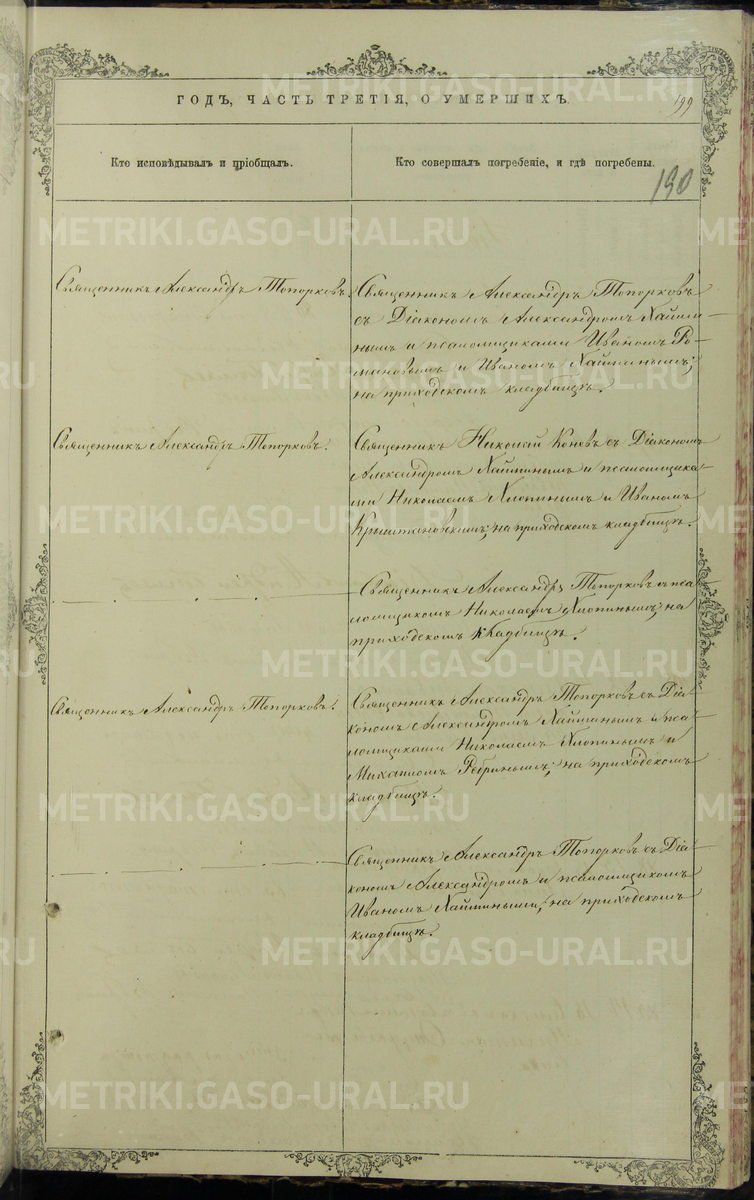 ГОДЪ, ЧАСТЬ ТРЕТІЯ, О УМЕРШИХЪ.
199
Кто исповѣдывалъ и пріобщалъ.
Кто совершалъ погребеніе, и гдѣ погребены.
190
Священникъ Александръ Топорковъ.
Священникъ Александръ Топорковъ
съ Діакономъ Александромъ Хайми-
нымъ и псаломщиками Иваномъ Ро-
мановымъ и Иваномъ Хайминымъ;
на приходскомъ кладбищѣ.
Священникъ Александръ Топорковъ.
Священникъ Николай Коневъ съ Діакономъ
Александромъ Хайминымъ и псаломщика-
ми Николаемъ Хлопинымъ и Иваномъ
Крыштановскимъ; на приходскомъ кладбищѣ.
Священникъ Александръ Топорковъ съ пса-
ломщикомъ Николаемъ Хлопинымъ; на
приходскомъ кладбищѣ.
Священникъ Александръ Топорковъ.
Священникъ Александръ Топорковъ съ Діа-
кономъ Александромъ Хайминымъ и пса-
ломщиками Николаемъ Хлопинымъ и
Михаиломъ Ребринымъ; на приходскомъ
кладбищѣ.
Священникъ Александръ Топорковъ съ Діа-
кономъ Александромъ и псаломщикомъ
Иваномъ Хаймиными; на приходскомъ
кладбищѣ.
METRIKI.GASO-URAL.RU